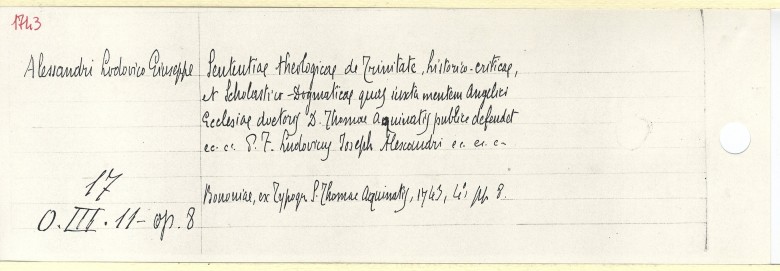 1743
Alessandri Lodovico Giuseppe
Sententiae theologicae de Trinitate, historico-criticae,
et Scholastico-Dogmaticae quas iuxta mentem Angelici
Ecclesiae doctoris D. Thomae Aquinatis publice defendet
ec. ec. P. F. Ludovicus Joseph Alexandri ec. ec. ec.
17
O. III. 11 - op. 8
Bononiae, ex Typogr. S. Thomae Aquinatis, 1743, 4°, pp. 8.